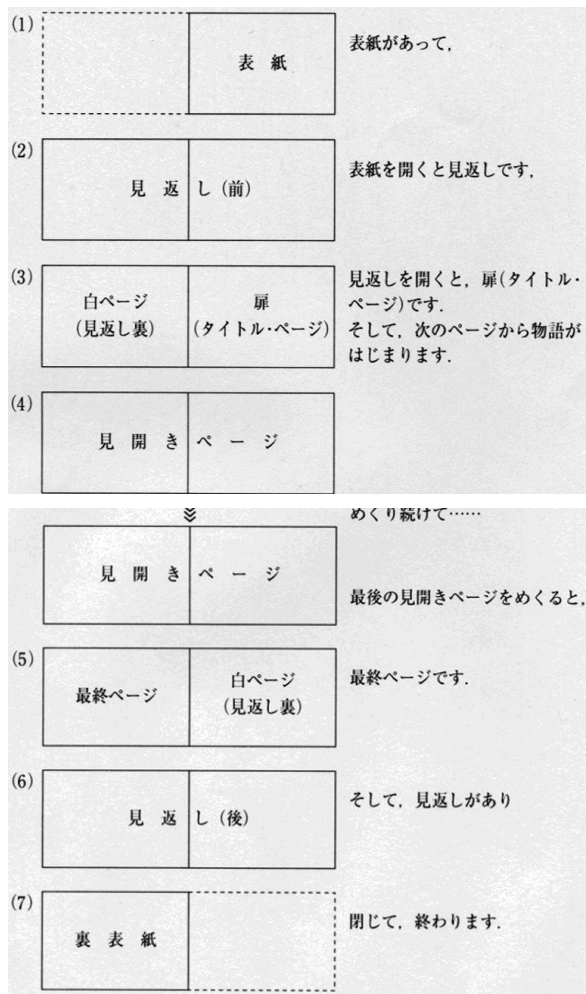 (1)
表 紙
表紙があって，
(2)
見 返 し（前）
表紙を開くと見返しです．
(3)
白ページ
（見返し裏）
扉
（タイトル・ページ）
見返しを開くと，扉（タイトル・
ページ）です．
そして，次のページから物語が
はじまります．
(4)
見 開 き ペ ー ジ
めくり続けて……
見 開 き ペ ー ジ
最後の見開きページをめくると，
(5)
最終ページ
白ページ
（見返し裏）
最終ページです．
(6)
見 返 し（後）
そして，見返しがあり
(7)
裏 表 紙
閉じて，終わります．